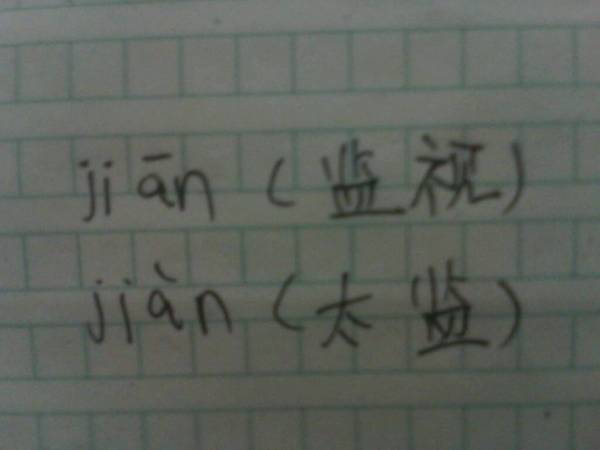 jiān（监视）
jiàn（太监）